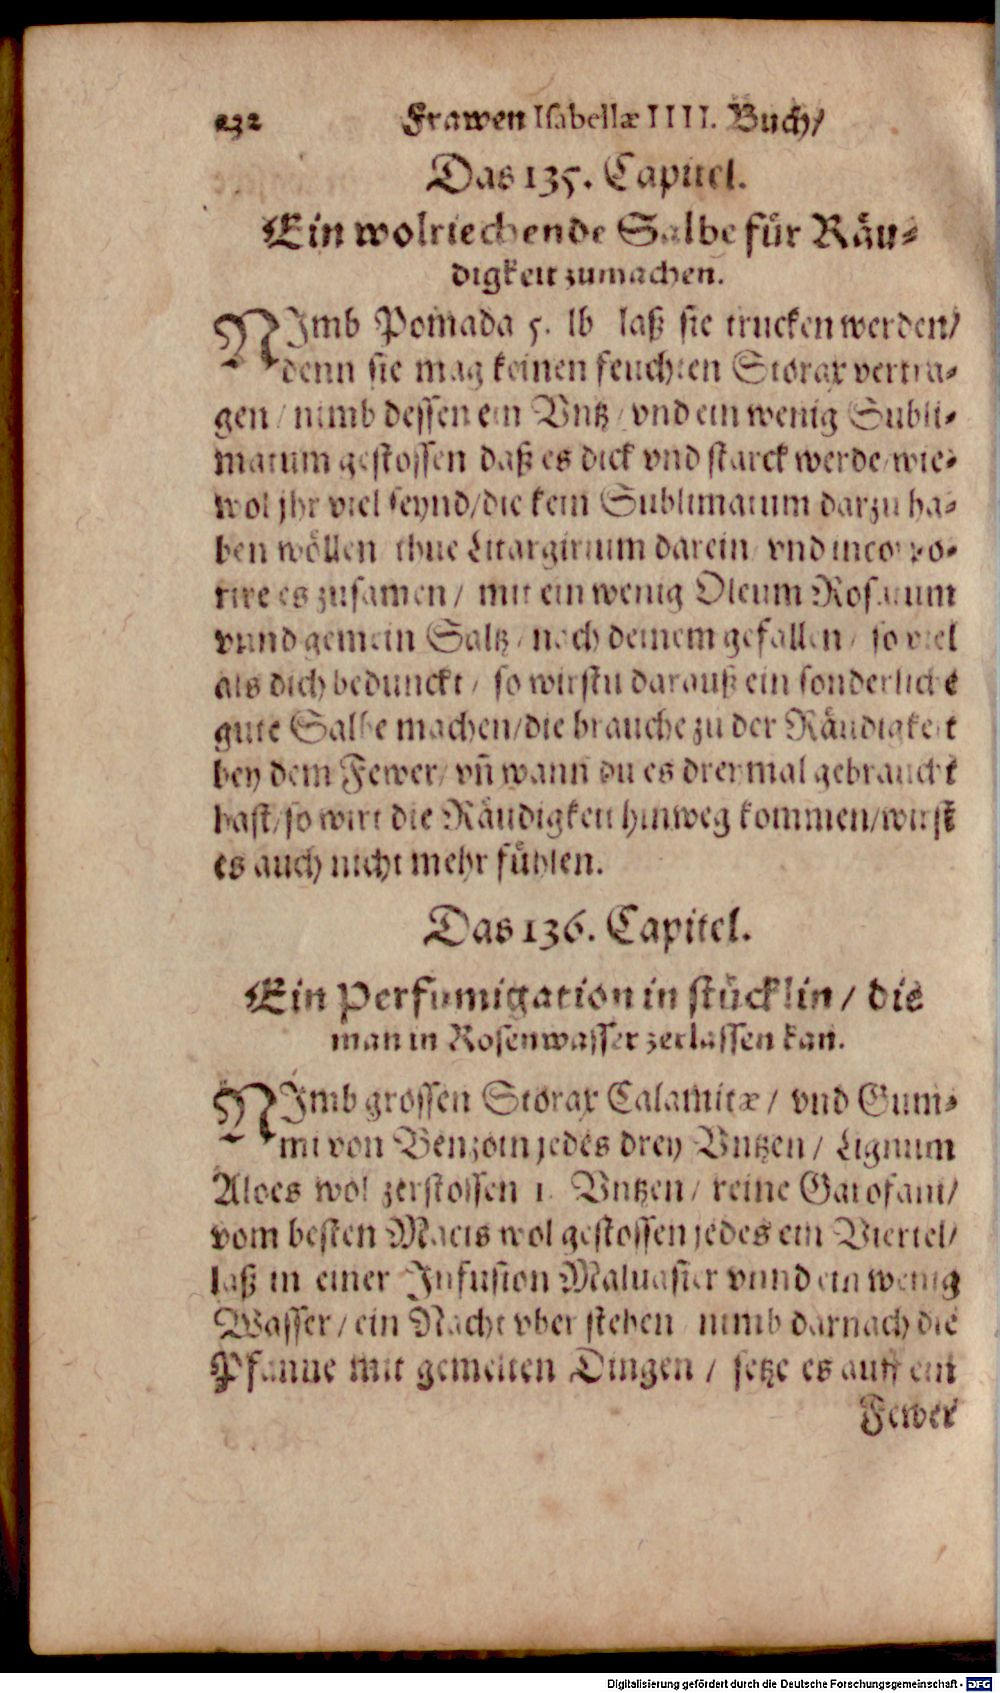 232 Frawen Isabellæ IIII. Buch/
Das 135. Capitel.
Ein wolriechende Salbe für Räu⸗
digkeit zumachen.
NImb Pomada 5. lb laß sie trucken werden/
denn sie mag keinen feuchten Storax vertra⸗
gen / nimb dessen ein Vntz / vnd ein wenig Subli⸗
matum gestossen daß es dick vnd starck werde / wie⸗
wol jhr viel seynd/die kein Sublimatum darzu ha⸗
ben wöllen thue Litargirium darein / vnd incorpo⸗
rire es zusamen / mit ein wenig Oleum Rosarum
vnnd gemein Saltz / nach deinem gefallen / so viel
als dich bedunckt / so wirstu darauß ein sonderliche
gute Salbe machen/die brauche zu der Räudigkeit
bey dem Fewer/ vñ wann du es dreymal gebraucht
hast/so wirt die Räudigkeit hinweg kommen/wirst
es auch nicht mehr fühlen.
Das 136. Capitel.
Ein Perfumigation in stücklin / die
man in Rosenwasser zerlassen kan.
NImb grossen Storax Calamitæ / vnd Gum⸗
mi von Benzoin jedes drey Vntzen / Lignum
Aloes wol zerstossen 1. Vntzen / reine Garofani/
vom besten Macis wol gestossen jedes ein Viertel/
laß in einer Infusion Maluasier vnnd ein wenig
Wasser / ein Nacht vber stehen nimb darnach die
Pfanne mit gemelten Dingen / setze es auff ein
Fewer
Digitalisierung gefördert durch die Deutsche Forschungsgemeinschaft - DFG